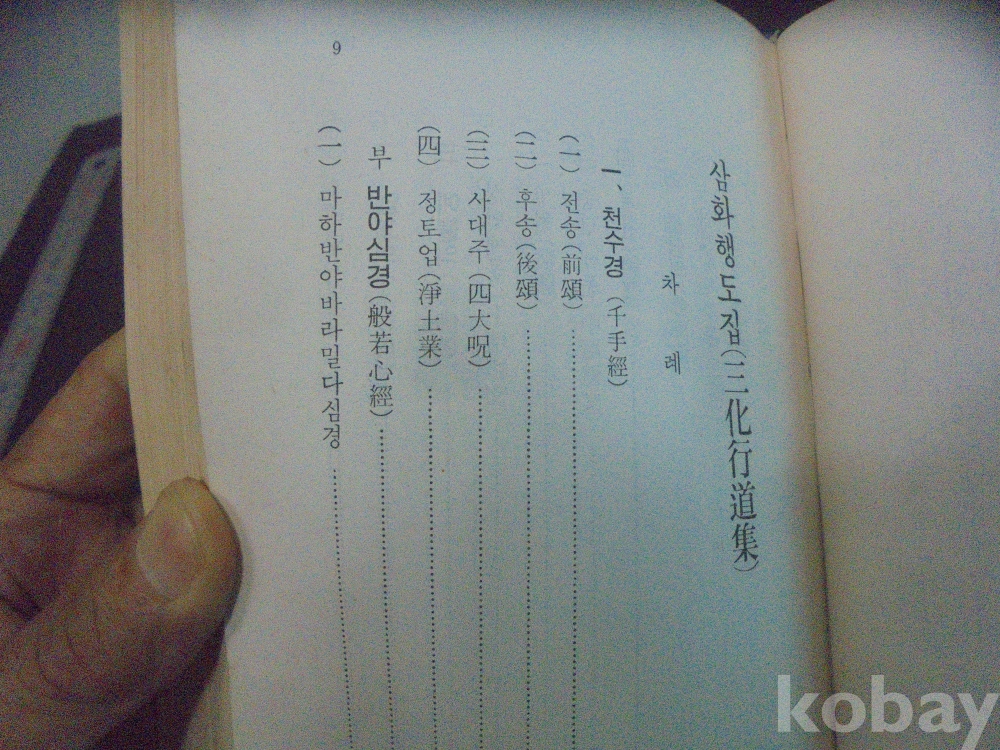 삼화행도집(三化行道集)
차례
一、천수경(千手經)
(一) 전송(前頌)
(二) 후송(後頌)
(三) 사대주(四大呪)
(四) 정토업(淨土業)
부 반야심경(般若心經)
(一) 마하반야바라밀다심경
9
kobay